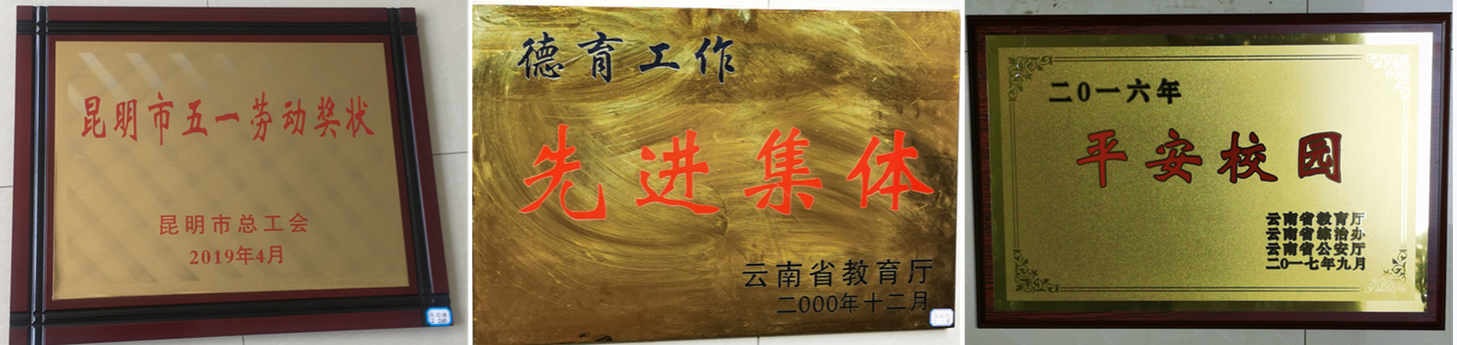 昆明市五一劳动奖状
昆明市总工会
2019年4月
德育工作
先进集体
云南省教育厅
二000年十二月
二0一六年
平安校园
云南省教育厅
云南省综治办
云南省公安厅
二0一七年九月